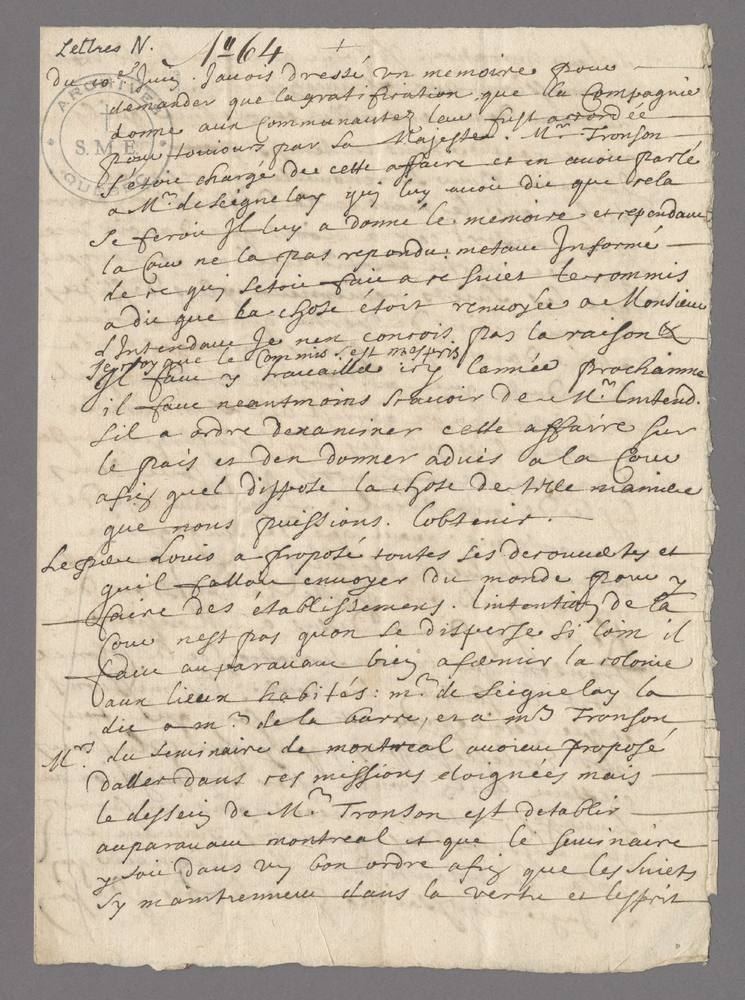 Lettres N. Nº 64
ARCHIVES S.M.E. QUEBEC
du 10e Juin. Javois dressé un memoire pour
demander que la gratification que la Compagnie
donne aux Communautez leur fust accordée
pour toujours par sa Majesté. Mr. Tronson
s'étoit chargé de cette affaire et en avoit parlé
a Mr. de Seignelay qui luy avoit dit que cela
se feroit Il luy a donné le memoire et cependant
la Cour ne la pas repondu. metant Informé
de ce qui sestoit fait a ce suiet le commis
a dit que la chose étoit renvoyée a Monsieur
l'Intendant Je nen conçois pas la raison &
Je croy que le Commis s'est mespris
Il faut y travailler icy lannée prochaine
il faut neantmoins scavoir de Mr. Lintend.
sil a ordre dexaminer cette affaire sur
le païs et den donner advis a la Cour
afin quel dispose la chose de telle maniere
que nous puissions lobtenir.
Le pere Louis a proposé toutes ses decouvertes et
quil falloit envoyer du monde pour y
faire des établissemens. lintention de la
Cour nest pas quon se disperse si loin il
faut auparavant bien afermir la colonie
aux lieux habités: mr. de Seignelay la
dit a mr. de la barre, et a mr. Tronson
Mrs. du seminaire de montreal avoient proposé
daller dans ces missions eloignées mais
le dessein de Mr. Tronson est detablir
auparavant montreal et que le seminaire
y soit dans un bon ordre afin que les suiets
sy maintiennent dans la vertu et lesprit